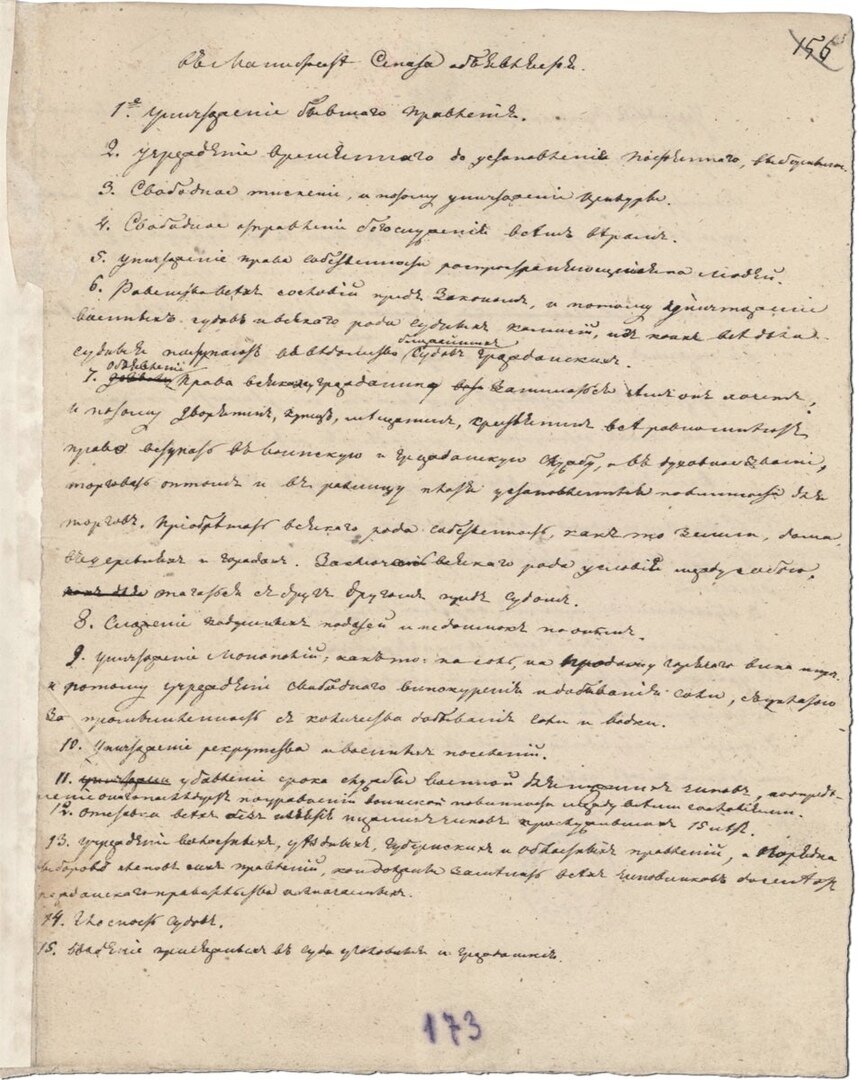 156
Въ Манифестѣ Сената объявляется.
1е. Уничтоженіе бывшаго правленія.
2. Учрежденіе временнаго до установленія постояннаго, выборными.
3. Свободное тисненіе, и потому уничтоженіе цензуры.
4. Свободное отправленіе богослуженія всѣмъ вѣрамъ.
5. Уничтоженіе права собственности распространяющейся на людей.
6. Равенство всѣхъ сословій предъ Закономъ, и потому уничтоженіе
военныхъ судовъ и всякаго рода судныхъ комиссій, изъ коихъ всѣ дѣла
судныя поступаютъ въ вѣдомство ближайшихъ судовъ гражданскихъ.
7. Объявленіе права всякому гражданину заниматься чѣмъ онъ хочетъ,
и потому дворянинъ, купецъ, мѣщанинъ, крестьянинъ всѣ равно имѣютъ
право вступать въ воинскую и гражданскую службу, и въ духовное званіе,
торговать оптомъ и въ розницу, платя установленныя повинности для
торговъ. Пріобрѣтать всякаго рода собственность, какъ то земли, дома
въ деревняхъ и городахъ. Заключать всякаго рода условія между собою,
тягаться съ другъ другомъ предъ судомъ.
8. Сложеніе подушныхъ податей и недоимокъ по онымъ.
9. Уничтоженіе монополій, какъ то: на соль, на продажу горячаго вина
и потому учрежденіе свободнаго винокуренія и добыванія соли, съ уплатою
за промышленность съ количества добыванія соли и водки.
10. Уничтоженіе рекрутства и военныхъ поселеній.
11. убавленіе срока службы военной для нижнихъ чиновъ,
воинской повинности между всѣми сословіями.
12. Отставка всѣхъ безъ изъятія нижнихъ чиновъ прослужившихъ 15 лѣтъ.
13. Учрежденіе волостныхъ, уѣздныхъ, губернскихъ и областныхъ правленій, и порядка
выборовъ членовъ сихъ правленій, кои должны замѣнить всѣхъ чиновниковъ доселѣ отъ
гражданскаго правительства назначаемыхъ.
14. Гласность судовъ.
15. Введеніе присяжныхъ въ суды уголовные и гражданскіе.
173